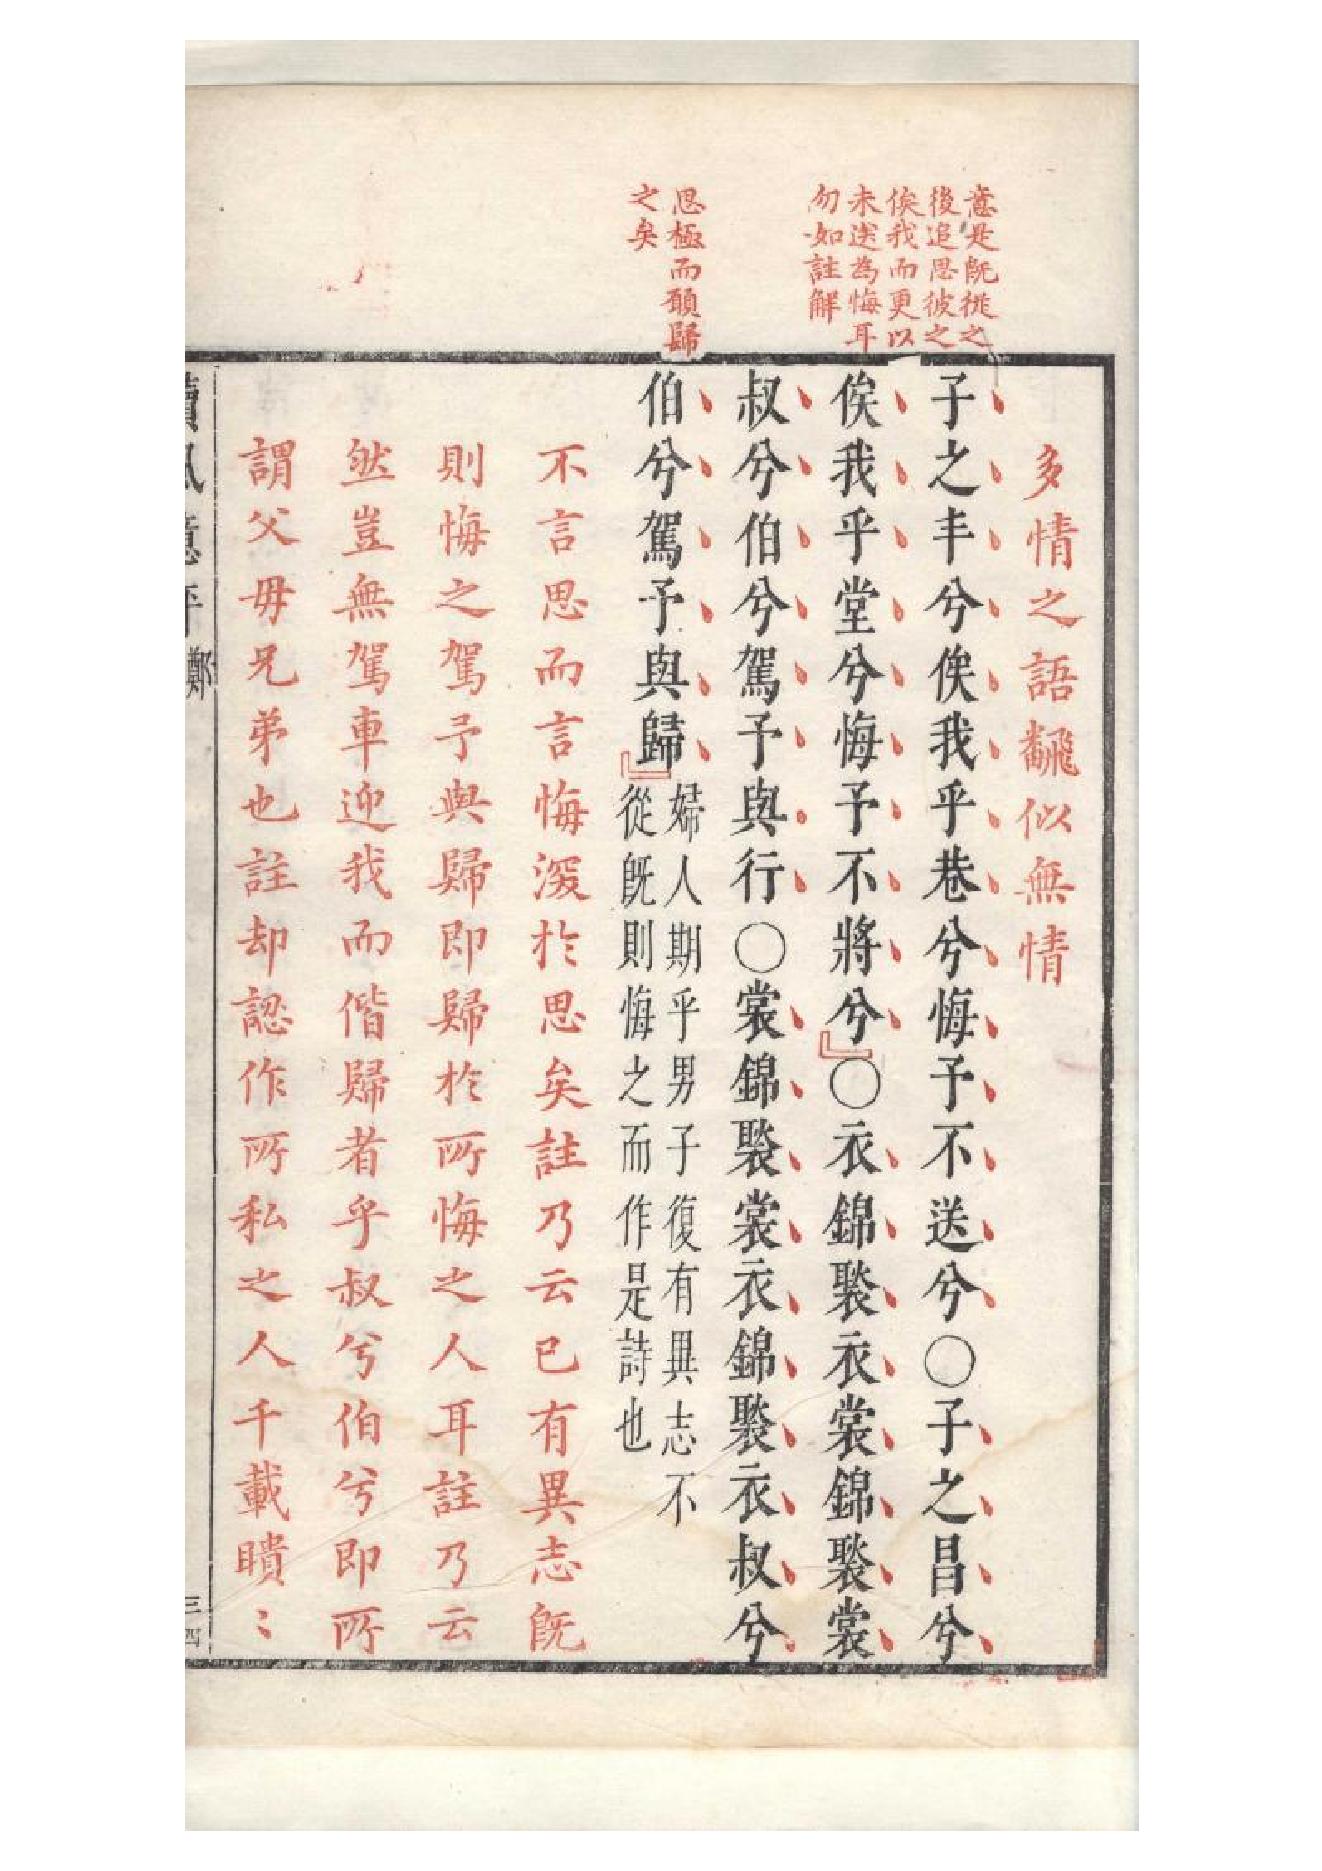 意是既從之
後追思彼之
俟我而更以
未送為悔耳
勿如註解
思極而願歸
之矣
多情之語翻似無情
子之丰兮俟我乎巷兮悔予不送兮○子之昌兮
俟我乎堂兮悔予不將兮○衣錦褧衣裳錦褧裳
叔兮伯兮駕予與行○裳錦褧裳衣錦褧衣叔兮
伯兮駕予與歸
婦人期乎男子復有異志不
從既則悔之而作是詩也
不言思而言悔深於思矣註乃云已有異志既
則悔之駕予與歸即歸於所悔之人耳註乃云
然豈無駕車迎我而偕歸者乎叔兮伯兮即所
謂父毋兄弟也註却認作所私之人千載瞶〻
讀風臆評 鄭 三四